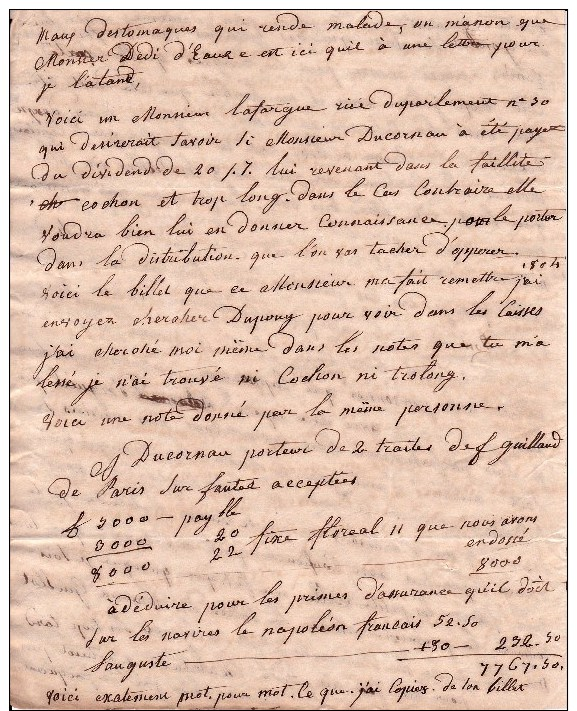 maus destomaques qui rende malade, on m'anon que
Monsieur Dedi d'Eause est ici quil à une lettre pour
je l'atand,
Voici un Monsieur lafargue rue duparlement n° 30
qui desirerait savoir si Monsieur Ducornau à été payez
du dividend de 20 p. % lui revenant dans la faillite
cochon et trop long. dans le cas contraire elle
voudra bien lui en donner connaissance pour le porter
dans la distribution que l'on vas tacher d'opperer.
voici le billet que ce Monsieur ma fait remettre j'ai
envoyez chercher Dupouy pour voir dans les liasses
j'ai cherché moi même dans les notes que tu m'a
lessé je n'ai trouvé ni Cochon ni trolong.
Voici une note donné par la même personne.
Ducornau porteur de 2 traites de f guilland
de Paris sur acceptées
f 5000 — payble
3000 20
8000 22 fixe floreal 11 que nous avons
endossé
8000
à déduire pour les primes d'assurance qu'il doit
sur les navires le napoléon francais 52.50
l'auguste 180 — 232.50
7767.50.
voici exatement mot pour mot. Ce que j'ai copiez de ton billet